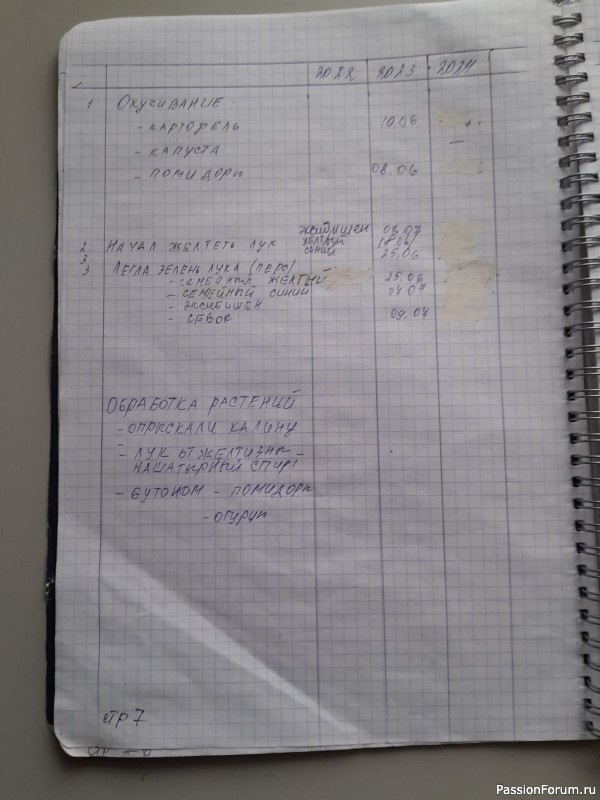 2022 2023 2024
1 Окучивание
- картофель 10.06
- капуста -
- помидоры 08.06
эксибишен 03.07
2 Начал желтеть лук желтый 18.06
синий 25.06
3
3 Легла зелень лука (перо)
- семейный желтый 25.06
- семейный синий 07.07
- эксибишен
- севок 09.07
Обработка растений
- опрыскали калину
- лук от желтизны -
нашатырный спирт
- бутоном - помидоры
- огурцы
стр 7
PassionForum.ru